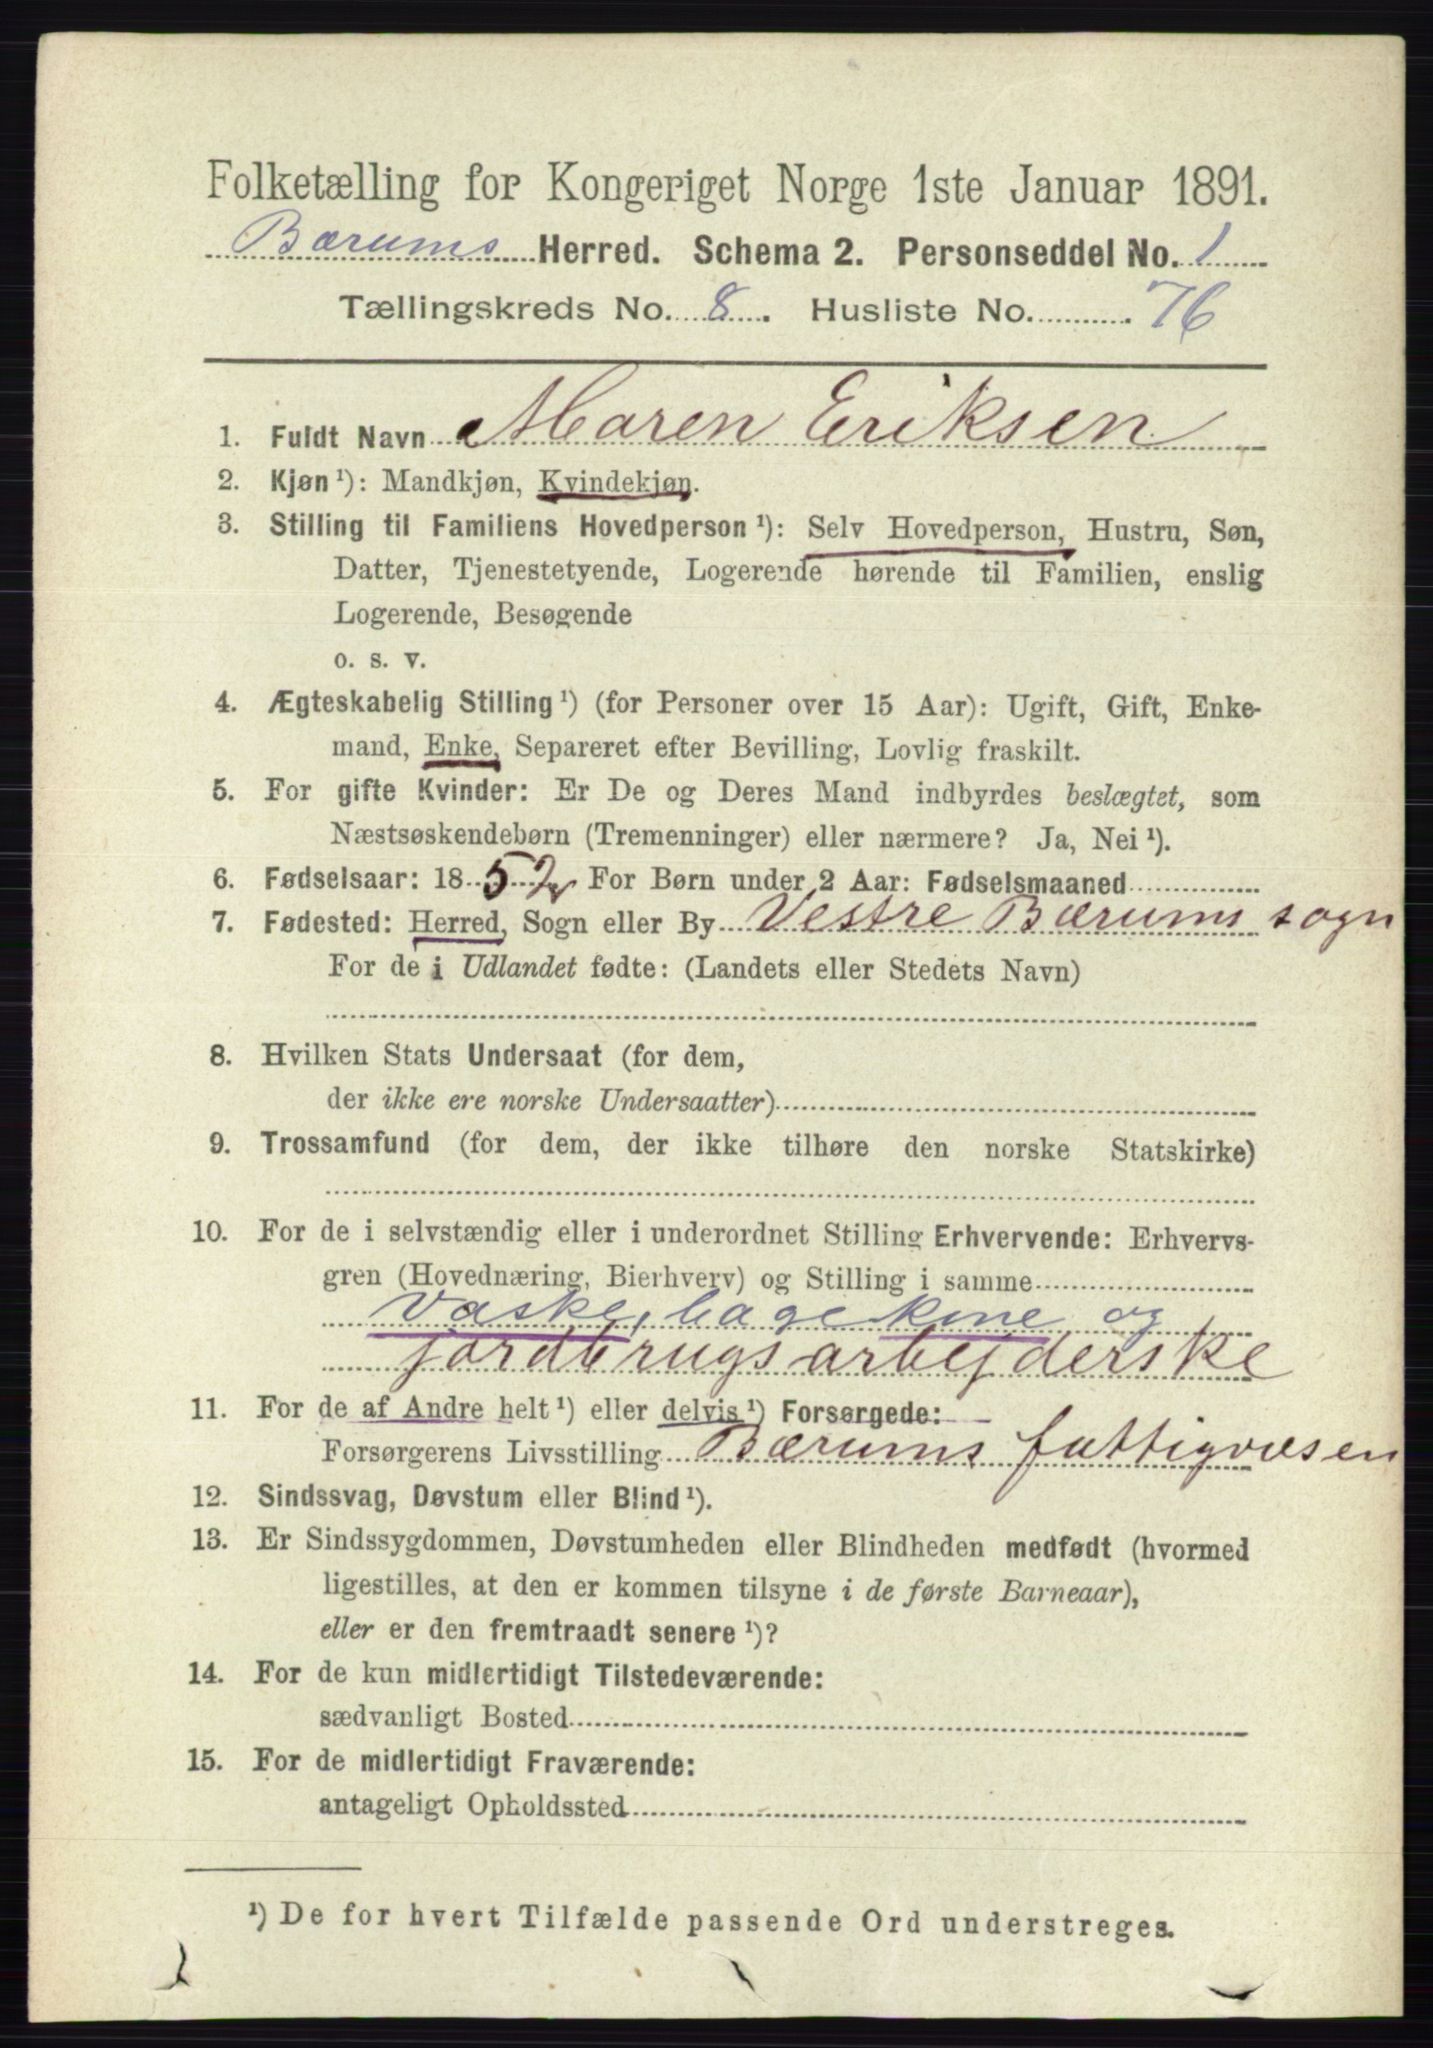 Folketælling for Kongeriget Norge 1ste Januar 1891.
Bærums Herred. Schema 2. Personseddel No. 1
Tællingskreds No. 8. Husliste No. 76
1. Fuldt Navn Maren Eriksen
2. Kjøn ¹): Mandkjøn, Kvindekjøn.
3. Stilling til Familiens Hovedperson ¹): Selv Hovedperson, Hustru, Søn,
Datter, Tjenestetyende, Logerende hørende til Familien, enslig
Logerende, Besøgende
o. s. v.
4. Ægteskabelig Stilling ¹) (for Personer over 15 Aar): Ugift, Gift, Enke-
mand, Enke, Separeret efter Bevilling, Lovlig fraskilt.
5. For gifte Kvinder: Er De og Deres Mand indbyrdes beslægtet, som
Næstsøskendebørn (Tremenninger) eller nærmere? Ja, Nei ¹).
6. Fødselsaar: 1852 For Børn under 2 Aar: Fødselsmaaned
7. Fødested: Herred, Sogn eller By Vestre Bærums sogn
For de i Udlandet fødte: (Landets eller Stedets Navn)
8. Hvilken Stats Undersaat (for dem,
der ikke ere norske Undersaatter)
9. Trossamfund (for dem, der ikke tilhøre den norske Statskirke)
10. For de i selvstændig eller i underordnet Stilling Erhvervende: Erhvervs-
gren (Hovednæring, Bierhverv) og Stilling i samme
vaske, bagekone og
jordbrugsarbejderske
11. For de af Andre helt ¹) eller delvis ¹) Forsørgede:
Forsørgerens Livsstilling Bærums fattigvæsen
12. Sindssvag, Døvstum eller Blind ¹).
13. Er Sindssygdommen, Døvstumheden eller Blindheden medfødt (hvormed
ligestilles, at den er kommen tilsyne i de første Barneaar),
eller er den fremtraadt senere ¹)?
14. For de kun midlertidigt Tilstedeværende:
sædvanligt Bosted
15. For de midlertidigt Fraværende:
antageligt Opholdssted
¹) De for hvert Tilfælde passende Ord understreges.